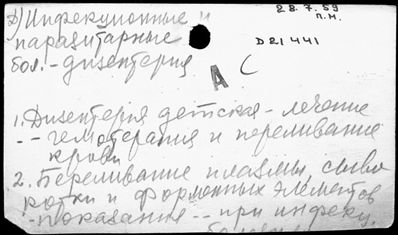 28.7.59
п.м.
Д) Инфекционные и
паразитарные
бол. - дизентерия
D21441
А С
1. Дизентерия детская - лечение
-- гемотерапия и переливание
крови
2. Переливание плазмы, сыво
ротки и форменных элементов
- показания -- при инфекц.